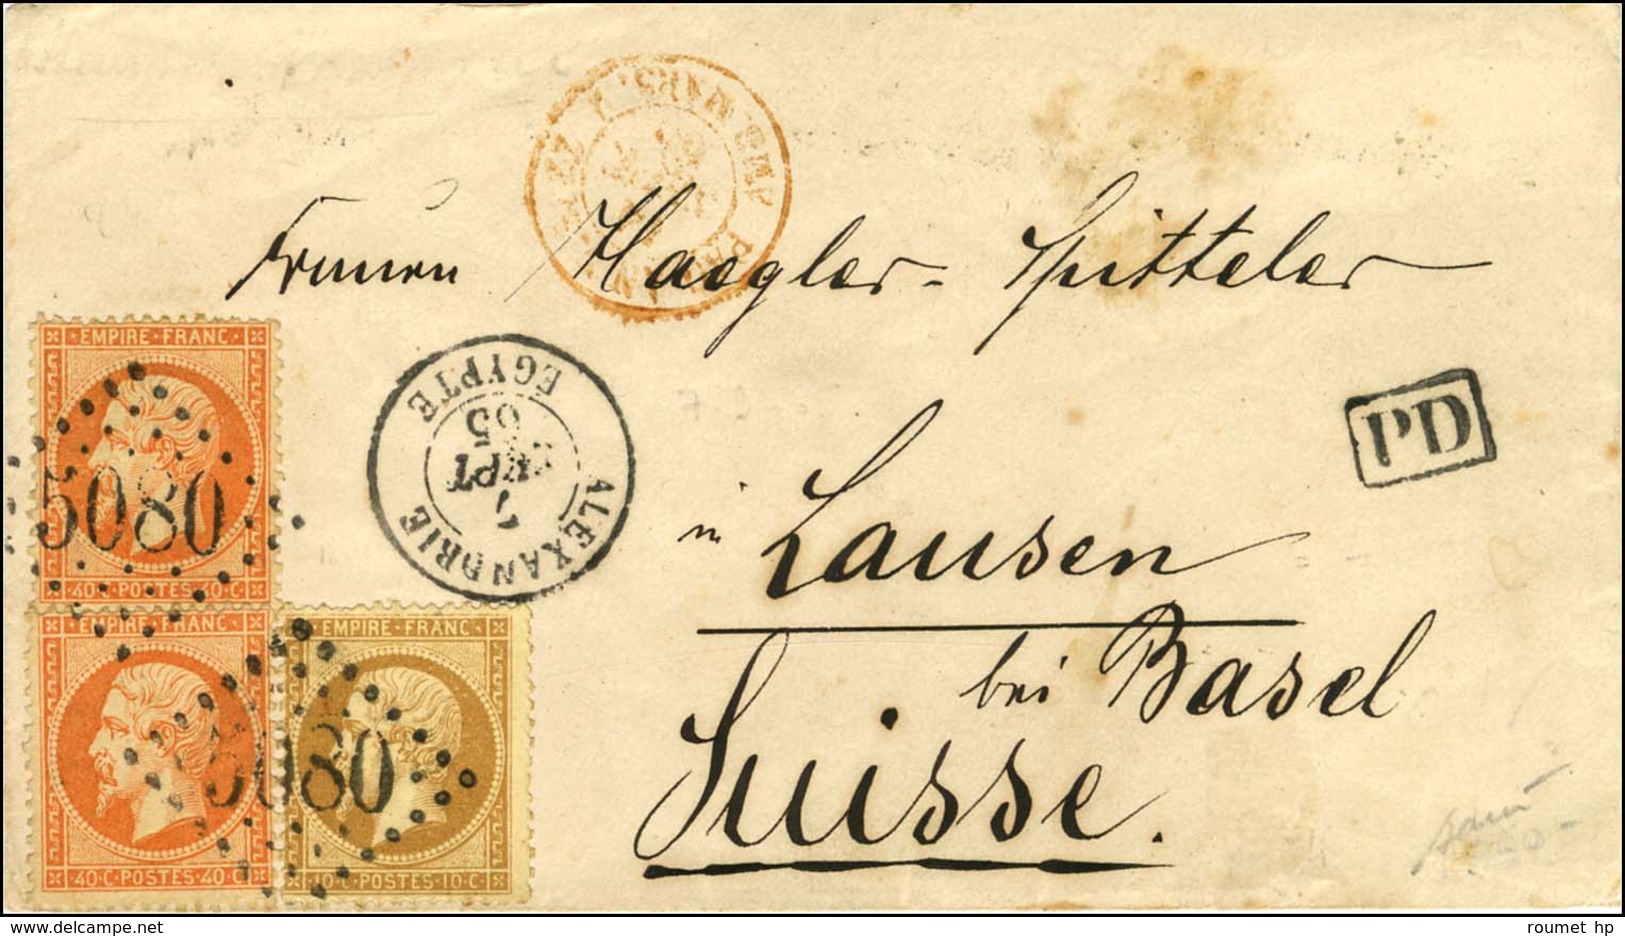 Frauen Haegler-Spitteler
EMPIRE·FRANC
5080
40·C·POSTES·40·C
ALEXANDRIE
SEPT
65
EGYPTE
PD
in Lausen
bei Basel
Suisse.
EMPIRE·FRANC
5080
40·C·POSTES·40·C
EMPIRE·FRANC
10·C·POSTES·10·C
roumet hp